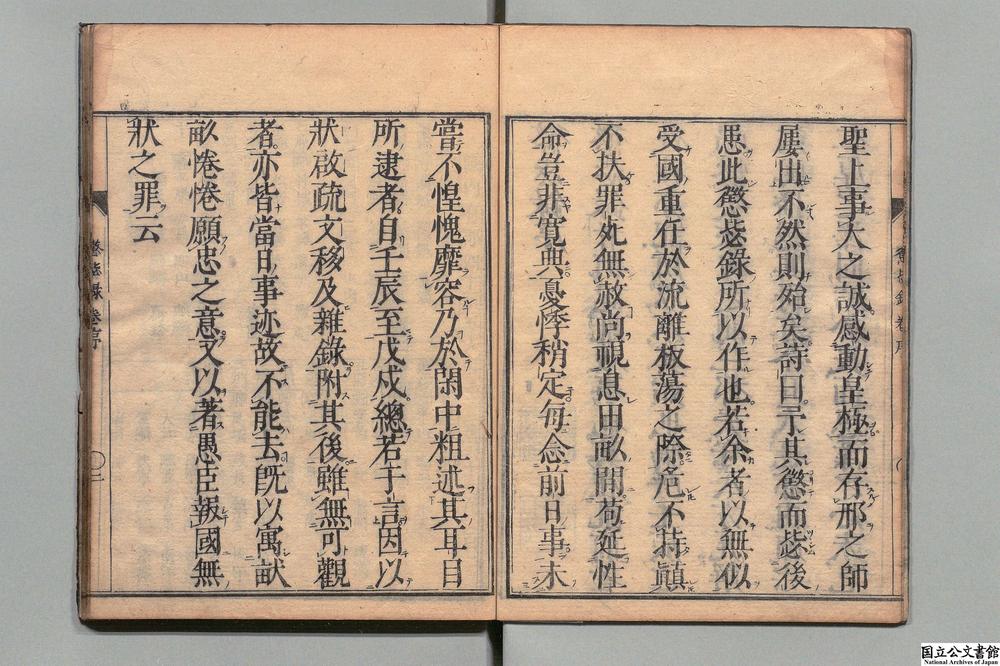 聖上事大之誠感動皇極而存邢之師
屢出不然則殆矣詩曰予其懲而毖後
患此懲毖錄所以作也若余者以無似
受國重任於流離板蕩之際危不持顚
不扶罪死無赦尚視息田畝間苟延性
命豈非寬典憂悸稍定每念前日事未
甞不惶愧靡容乃於閑中粗述其耳目
所逮者自壬辰至戊戌總若干言因以
狀啟疏文移及雜錄附其後雖無可觀
者亦皆當日事迹故不能去旣以寓畎
畝惓惓願忠之意又以著愚臣報國無
狀之罪云
懲毖錄 卷序
〇二
国立公文書館
National Archives of Japan